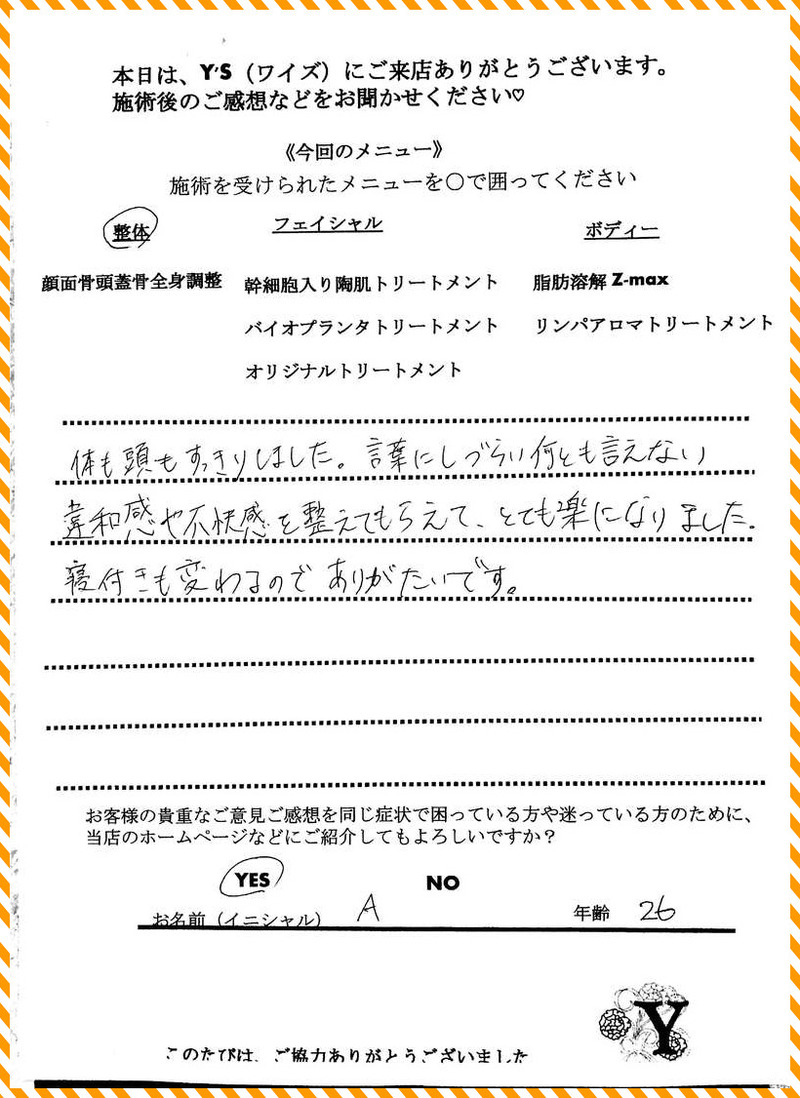 本日は、Y'S（ワイズ）にご来店ありがとうございます。
施術後のご感想などをお聞かせください♡
《今回のメニュー》
施術を受けられたメニューを〇で囲ってください
整体
フェイシャル
ボディー
顔面骨頭蓋骨全身調整
幹細胞入り陶肌トリートメント
脂肪溶解 Z-max
バイオプランタトリートメント
リンパアロマトリートメント
オリジナルトリートメント
体も頭もすっきりしました。言葉にしづらい何とも言えない
違和感や不快感を整えてもらえて、とても楽になりました。
寝付きも変わるのでありがたいです。
お客様の貴重なご意見ご感想を同じ症状で困っている方や迷っている方のために、
当店のホームページなどにご紹介してもよろしいですか？
YES NO
お名前（イニシャル） A 年齢 26
Y
このたびは、ご協力ありがとうございました